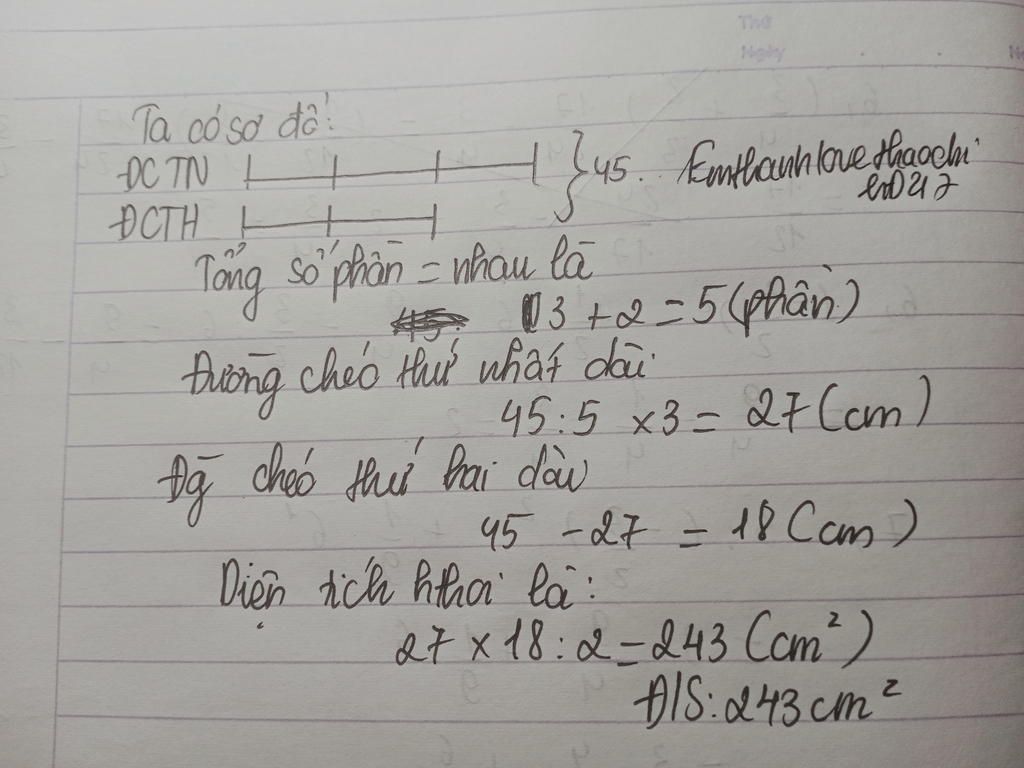 Thứ
Ngày
Ta có sơ đồ:
ĐCTN 45. Emthanhlovethaochi
ĐCTH
Tổng số phần = nhau là
3 + 2 = 5 (phần)
Đường chéo thứ nhất dài:
45 : 5 x 3 = 27 (cm)
Đg chéo thứ hai dài
45 - 27 = 18 (cm)
Diện tích hthoi là:
27 x 18 : 2 = 243 (cm²)
Đ/S: 243 cm²